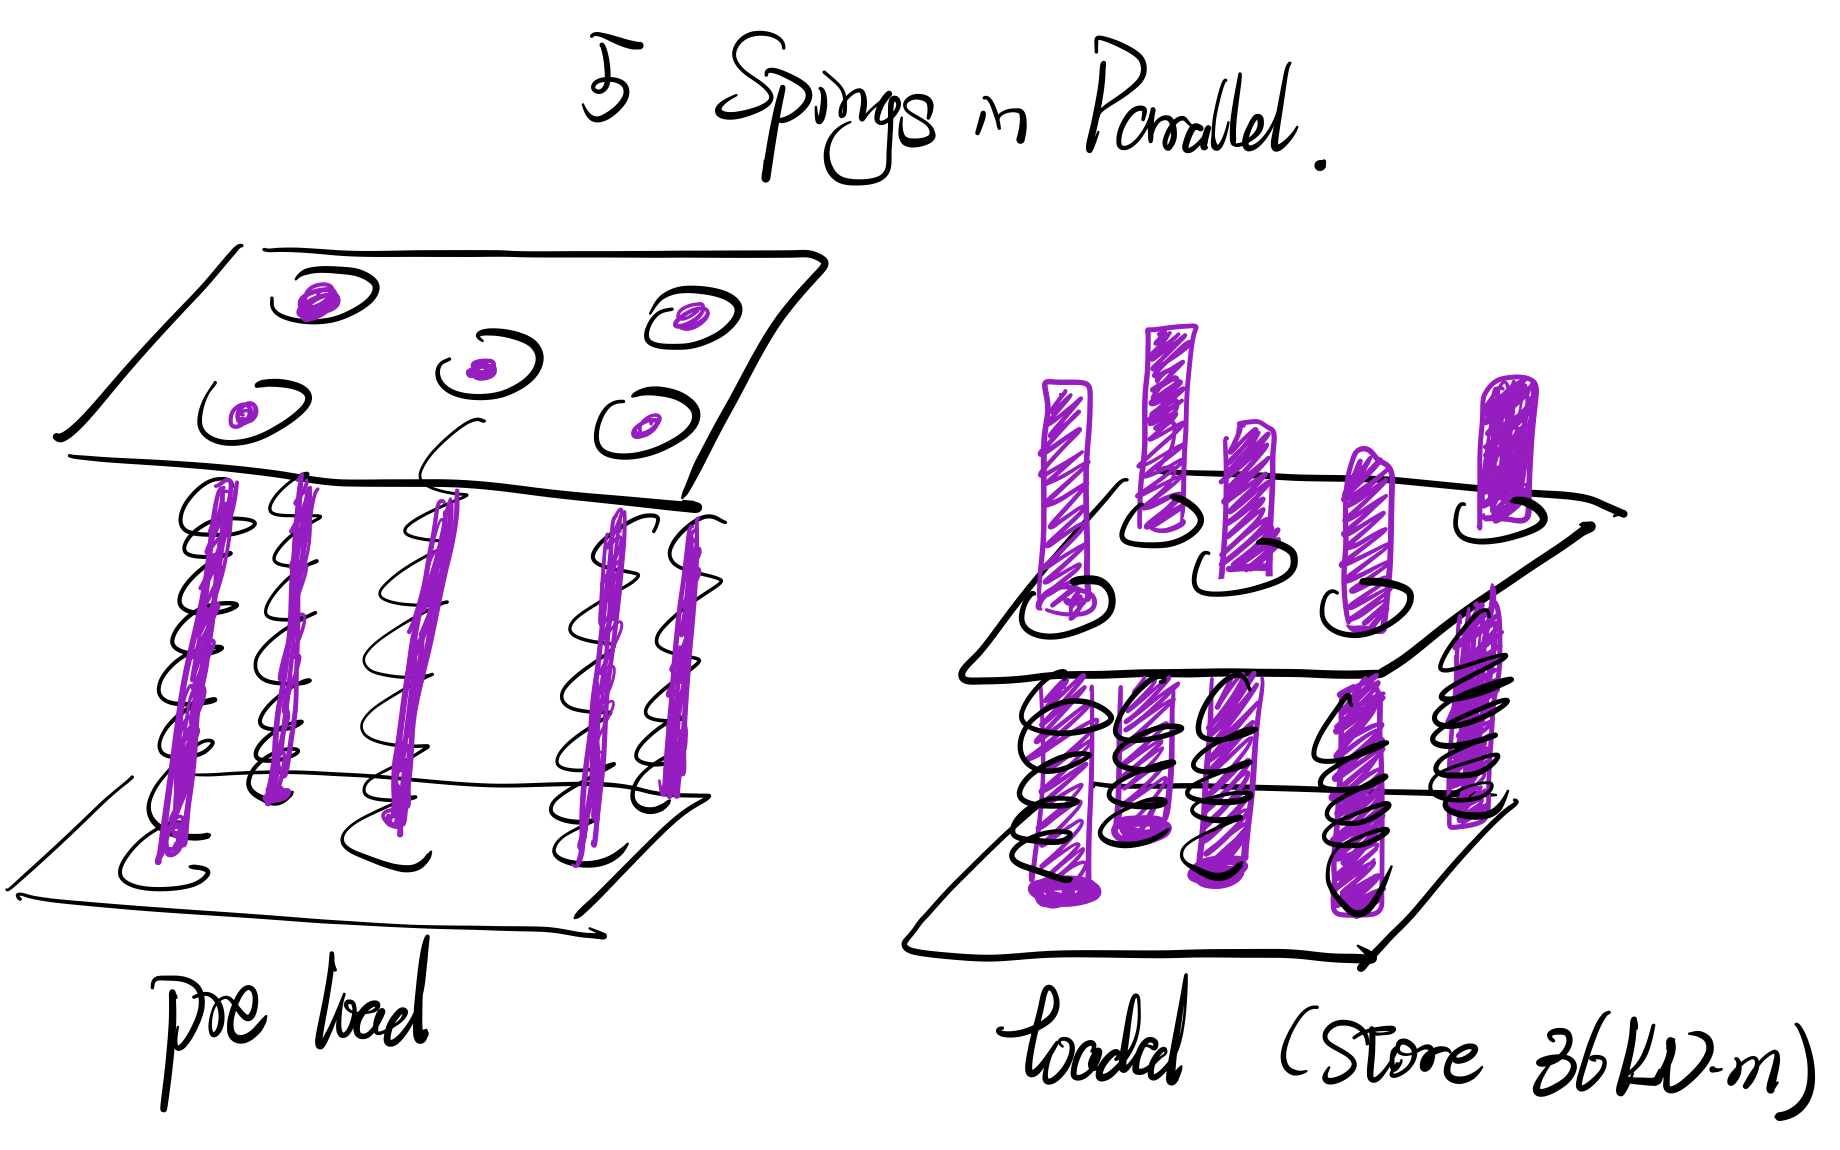 5 Spings in Parallel.
pre load
loaded (store 36KN-m)